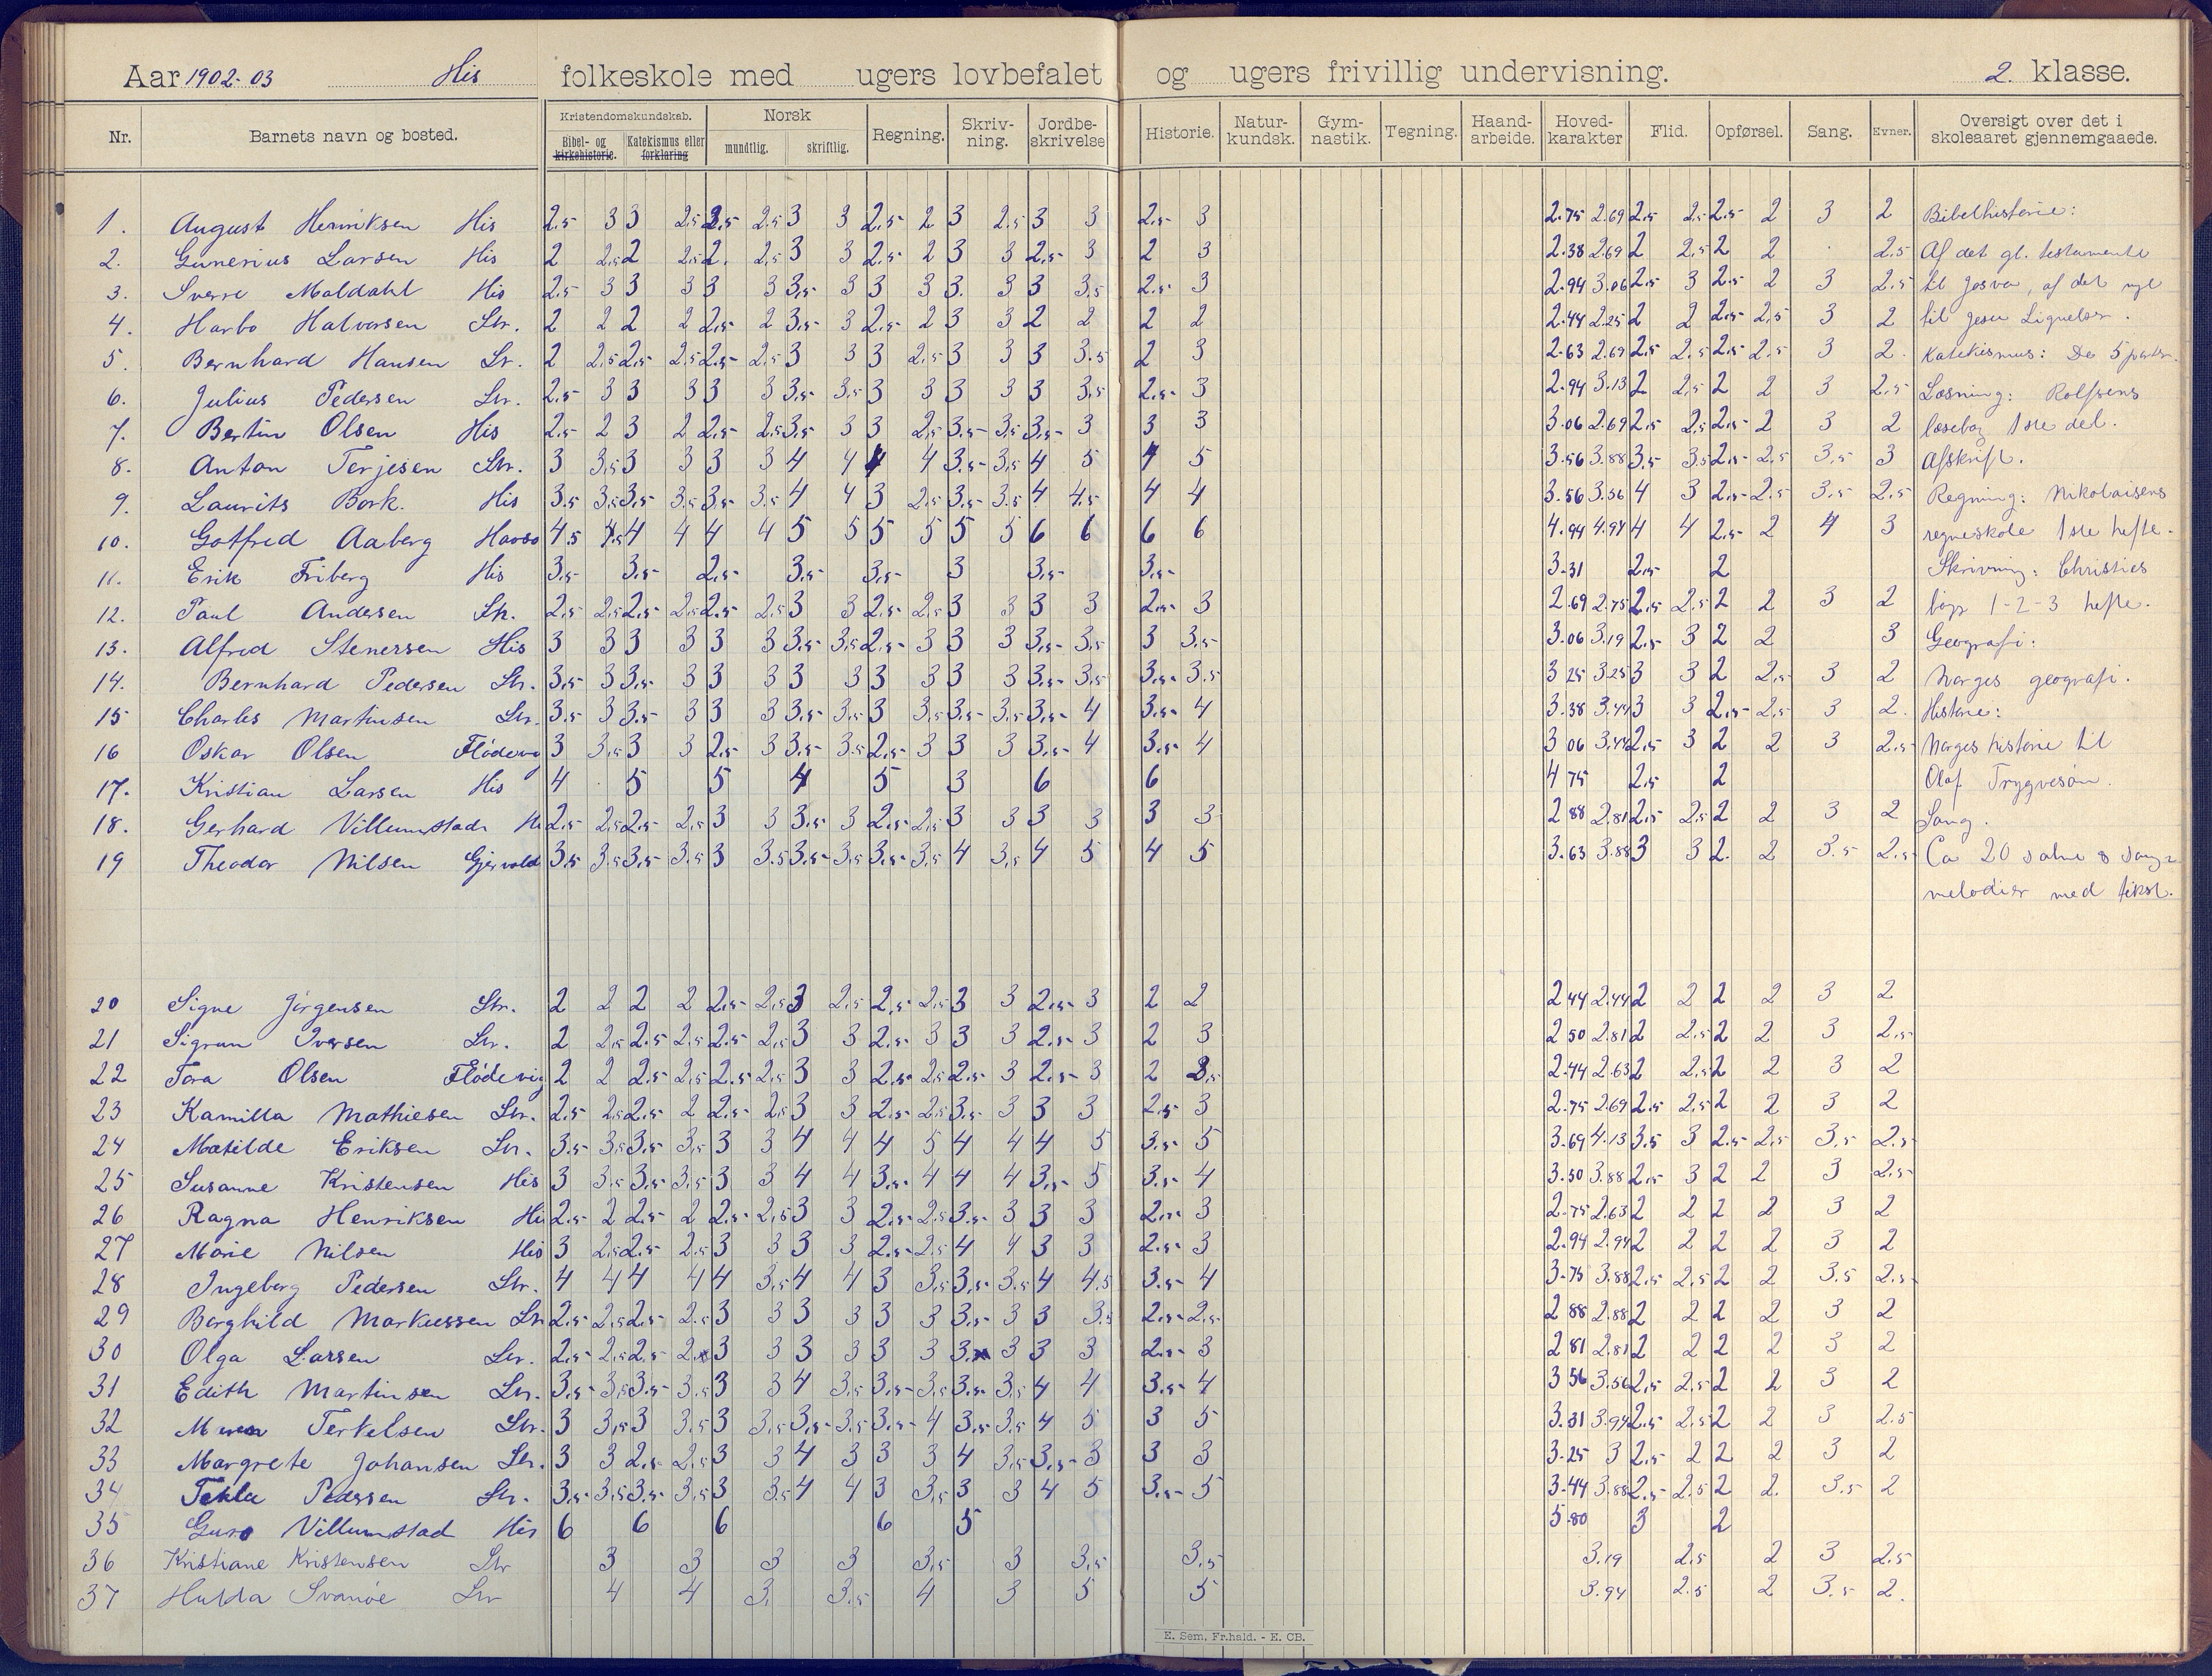 Aar 1902-03 His folkeskole med ugers lovbefalet og ugers frivillig undervisning. 2. klasse.
Nr. Barnets navn og bosted. Kristendomskundskab. Bibel- og kirkehistorie. Katekismus eller forklaring Norsk mundtlig. skriftlig. Regning. Skriv-ning. Jordbe-skrivelse Historie. Natur-kundsk. Gym-nastik. Tegning. Haand-arbeide. Hoved-karakter Flid. Opførsel. Sang. Evner. Oversigt over det i skoleaaret gjennemgaaede.
1. August Henriksen His 2.5 3 3 2.5 2.5 2.5 3 3 2.5 2 3 2.5 3 3 2.5 3 2.75 2.69 2.5 2.5 2.5 2 3 2 Bibelhistorie:
2. Gunerius Larsen His 2 2.5 2 2.5 2. 2.5 3 3 2.5 2 3 3 2.5 3 2 3 2.38 2.69 2 2.5 2 2 2.5 Af det gl. testamente
3. Sverre Moldahl His 2.5 3 3 3 3 3 3.5 3 3 3 3. 3 3 3.5 2.5 3 2.94 3.06 2.5 3 2.5 2 3 2.5 til Josva, af det nye
4. Harbo Halvorsen Str. 2 2 2 2 2.5 2 3.5 3 2.5 2 3 3 2 2 2 2 2.44 2.25 2 2 2.5 2.5 3 2 til Jesu Lignelser.
5. Bernhard Hansen Sr. 2 2.5 2.5 2.5 2.5 2.5 3 3 3 2.5 3 3 3 3.5 2 3 2.63 2.69 2.5 2.5 2.5 2.5 3 2. Katekismus: De 5 parter.
6. Julius Pedersen Str. 2.5 3 3 3 3 3 3.5 3.5 3 3 3 3 3 3.5 2.5 3 2.94 3.13 2 2.5 2 2 3 2.5 Læsning: Rolfsens
7. Bertin Olsen His 2.5 2 3 2 2.5 2.5 3.5 3 3 2.5 3.5 3.5 3.5 3 3 3 3.06 2.69 2.5 2.5 2.5 2 3 2 læsebog 1ste del.
8. Anton Terjesen Str. 3 3.5 3 3 3 3 4 4 4 4 3.5 3.5 4 5 4 5 3.56 3.88 3.5 3.5 2.5 2.5 3.5 3 Afskrift.
9. Laurits Bork. His 3.5 3.5 3.5 3.5 3.5 3.5 4 4 3 2.5 3.5 3.5 4 4.5 4 4 3.56 3.56 4 3 2.5 2.5 3.5 2.5 Regning: Nikolaisens
10. Gotfred Aaberg 4.5 4.5 4 4 4 4 5 5 5 5 5 5 6 6 6 6 4.94 4.94 4 4 2.5 2 4 3 regneskole 1ste hefte.
11. Erik Friberg His 3.5 3.5 2.5 3.5 3.5 3 3.5 3.5 3.31 2.5 2 Skrivning: Christies
12. Paul Andersen Str. 2.5 2.5 2.5 2.5 2.5 2.5 3 3 2.5 2.5 3 3 3 3 2.5 3 2.69 2.75 2.5 2.5 2 2 3 2 1-2-3 hefte.
13. Alfred Stenersen His 3 3 3 3 3 3 3.5 3.5 2.5 3 3 3 3.5 3.5 3 3.5 3.06 3.19 2.5 3 2 2 3 Geografi:
14. Bernhard Pedersen Str. 3.5 3 3.5 3 3 3 3 3 3 3 3 3 3.5 3.5 3.5 3.5 3 25 3.25 3 3 2 2.5 3 2 Norges geografi.
15 Charles Martinsen Str. 3.5 3 3.5 3 3 3 3.5 3.5 3 3.5 3.5 3.5 3.5 4 3.5 4 3.38 3.44 3 3 2.5 2.5 3 2. Historie:
16 Oskar Olsen Flödevig 3 3.5 3 3 2.5 3 3.5 3.5 2.5 3 3 3 3.5 4 3.5 4 3 06 3.44 2.5 3 2 2 3 2.5 Norges historie til
17. Kristian Larsen His 4 5 5 4 5 3 6 6 4 75 2.5 2 Olaf Trygvesøn.
18. Gerhard Villumstad His 2.5 2.5 2.5 2.5 3 3 3.5 3 2.5 2.5 3 3 3 3 3 3 2 88 2.81 2.5 2.5 2 2 3 2 Sang.
19 Theodor Nilsen Gjervold 3.5 3.5 3.5 3.5 3 3.5 3.5 3.5 3.5 3.5 4 3.5 4 5 4 5 3.63 3.88 3 3 2. 2 3.5 2.5 Ca 20 salme & sang-
melodier med tekst.
20 Signe Jörgensen Str. 2 2 2 2 2.5 2.5 3 2.5 2.5 2.5 3 3 2.5 3 2 2 2 44 2.44 2 2 2 2 3 2
21 Sigrun Iversen Str. 2 2.5 2.5 2.5 2.5 2.5 3 3 2.5 3 3 3 2.5 3 2 3 2 50 2.81 2 2.5 2 2 3 2.5
22 Tora Olsen Flödevig 2 2 2.5 2.5 2.5 2.5 3 3 2.5 2.5 2.5 3 2.5 3 2 3.5 2.44 2.63 2 2.5 2 2 3 2
23 Kamilla Mathiesen Str. 2.5 2.5 2.5 2 2.5 2.5 3 3 2.5 2.5 3.5 3 3 3 2.5 3 2.75 2.69 2.5 2.5 2 2 3 2
24 Matilde Eriksen Str. 3.5 3.5 3.5 3.5 3 3 4 4 4 5 4 4 4 5 3.5 5 3.69 4.13 3.5 3 2.5 2.5 3.5 2.5
25 Susanne Kristensen His 3 3.5 3.5 3.5 3 3 4 4 3.5 4 4 4 3.5 5 3.5 4 3.50 3.88 2.5 3 2 2 3 2.5
26 Ragna Henriksen His 2.5 2 2.5 2 2.5 2.5 3 3 2.5 2.5 3.5 3 3 3 2.5 3 2.75 2.63 2 2 2 2 3 2
27 Marie Nilsen His 3 2.5 2.5 2.5 3 3 3 3 2.5 2.5 4 4 3 3 2.5 3 2.94 2.94 2 2 2 2 3 2
28 Ingeborg Pedersen Str. 4 4 4 4 4 3.5 4 4 3 3.5 3.5 3.5 4 4.5 3.5 4 3.75 3.88 2.5 2.5 2 2 3.5 2.5
29 Borghild Markussen Str 2.5 2.5 2.5 2.5 3 3 3 3 3 3 3.5 3 3 3.5 2.5 2.5 2 88 2.88 2 2 2 2 3 2
30 Olga Larsen Str. 2.5 2.5 2.5 2. 3 3 3 3 3 3 3. 3 3 3 2.5 3 2 81 2.81 2 2 2 2 3 2
31 Edith Martinsen Str. 3.5 3.5 3.5 3.5 3 3 4 3.5 3.5 3.5 3.5 3.5 4 4 3.5 4 3 56 3.56 2.5 2.5 2 2 3 2
32 Maren Terkelsen Str. 3 3.5 3 3.5 3 3.5 3.5 3.5 3.5 4 3.5 3.5 4 5 3 5 3.31 3.94 2.5 2.5 2 2 3 2.5
33 Margrete Johansen Str. 3 3 2.5 2.5 3 3 4 3 3 3 4 3.5 3.5 3 3 3 3.25 3 2.5 2 2 2 3 2
34 Tekla Pedersen Str. 3.5 3.5 3.5 3.5 3 3.5 4 4 3 3.5 3 3 4 5 3.5 5 3.44 3.88 2.5 2.5 2 2. 3.5 2
35 Guro Villumstad His 6 6 6 6 5 5.80 3 2
36 Kristiane Kristensen Str 3 3 3 3 3.5 3 3.5 3.5 3.19 2.5 2 3 2.5
37 Hulda Svanöe Str 4 4 3. 3.5 4 3 5 5 3.94 2.5 2 3.5 2.
E. Sem, Fr.hald. - E. CB.